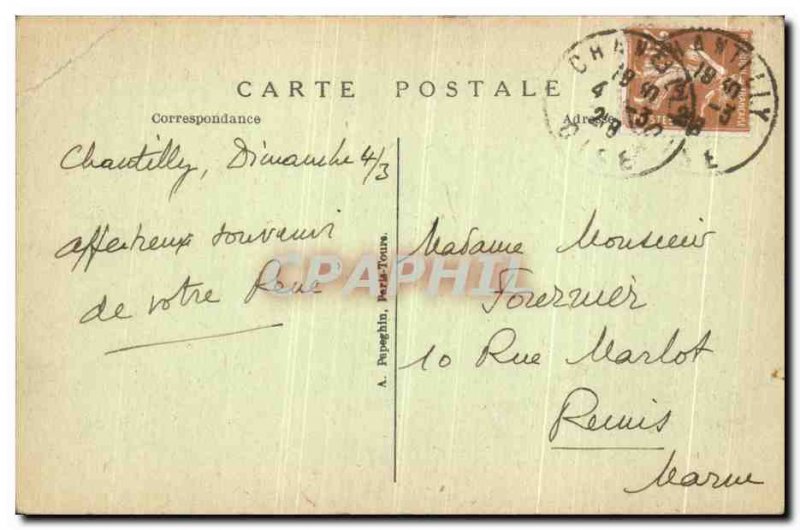 CARTE POSTALE
Correspondance
Adresse
CHANTILLY
19 45
4 -3
28
OISE
CHANTILLY
OISE
Chantilly, Dimanche 4/3
affectueux souvenir
de votre René
A. Papeghin, Paris-Tours.
CPAPHIL
Madame Monsieur
Fournier
10 Rue Marlot
Reims
Marne